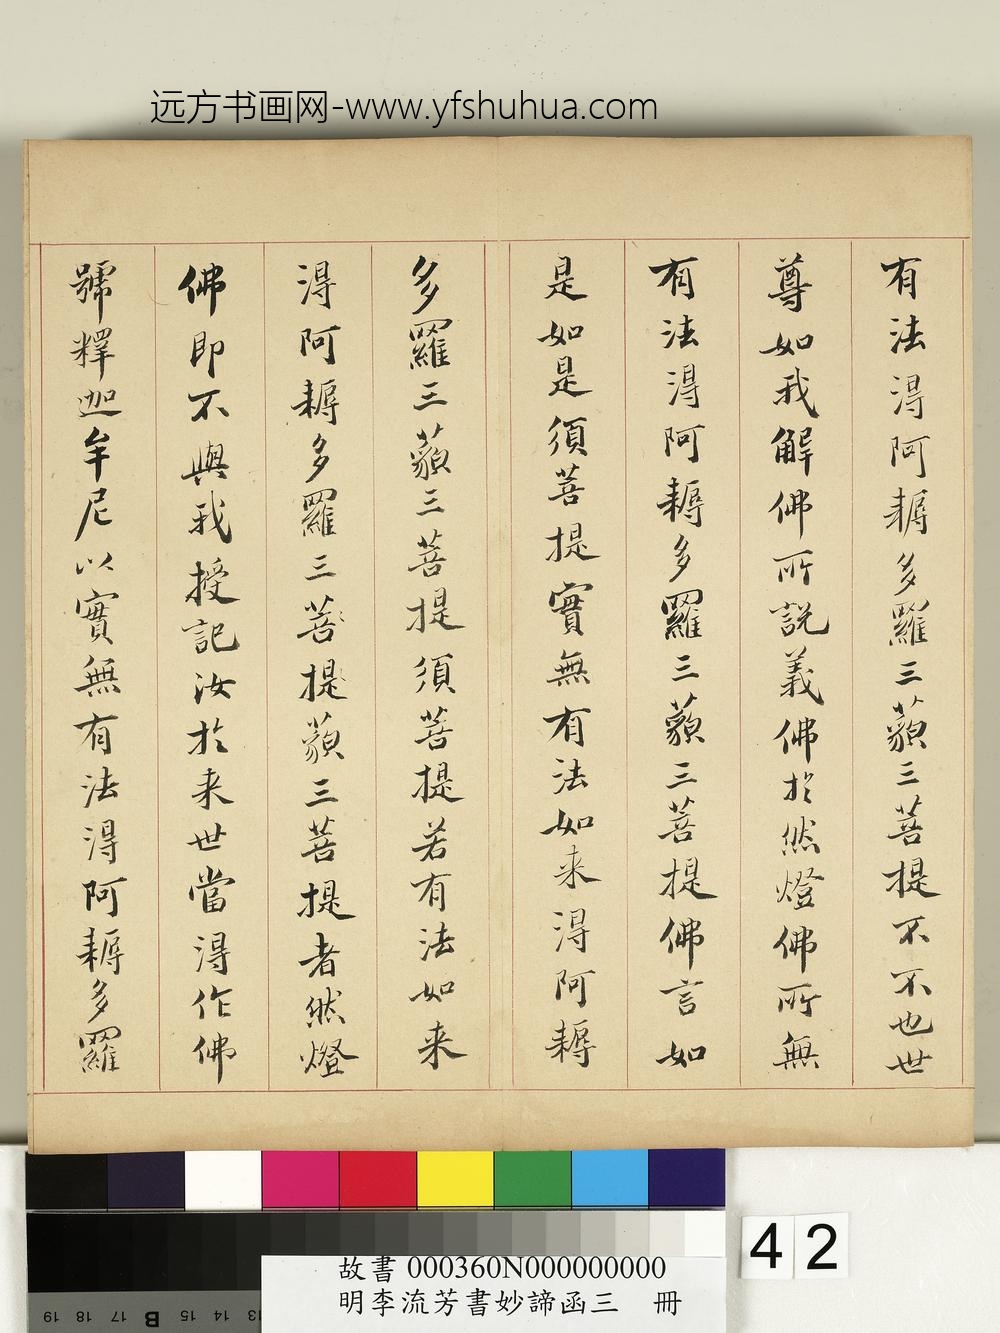 远方书画网-www.yfshuhua.com
有法得阿耨多羅三藐三菩提不不也世
尊如我解佛所説義佛於然燈佛所無
有法得阿耨多羅三藐三菩提佛言如
是如是須菩提實無有法如来得阿耨
多羅三藐三菩提須菩提若有法如来
得阿耨多羅三菩提藐三菩提者然燈
佛即不與我授記汝於来世當得作佛
號釋迦牟尼以實無有法得阿耨多羅
42
故書 000360N000000000
明李流芳書妙諦函三 冊
19 18 17 16 B 15 14 13